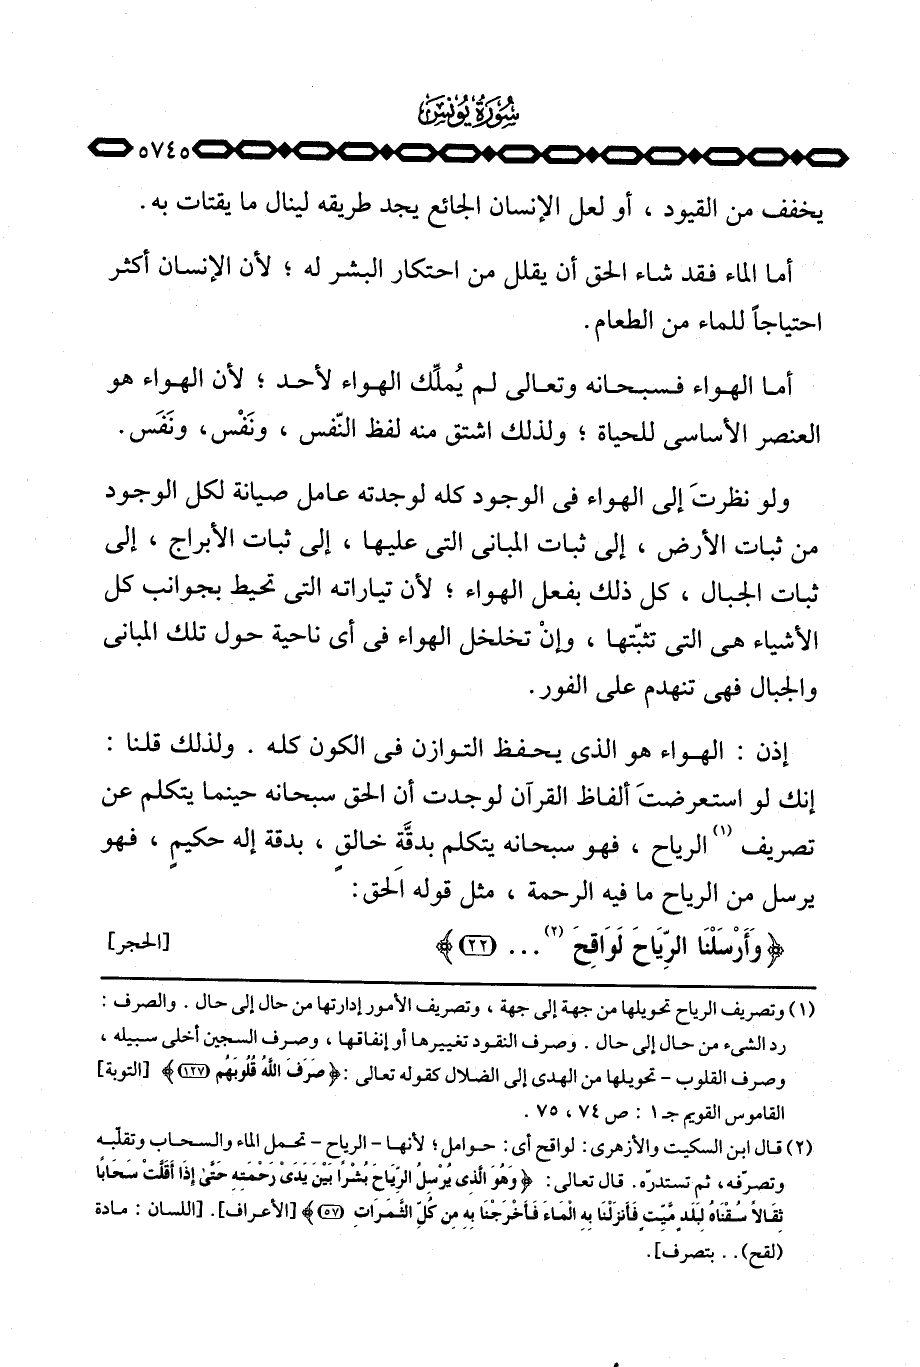 سُورَةُ يُونُسَ
٥٧٤٥
يخفف من القيود ، أو لعل الإنسان الجائع يجد طريقه لينال ما يقتات به .
أما الماء فقد شاء الحق أن يقلل من احتكار البشر له ؛ لأن الإنسان أكثر
احتياجاً للماء من الطعام .
أما الهواء فسبحانه وتعالى لم يُملِّك الهواء لأحد ؛ لأن الهواء هو
العنصر الأساسى للحياة ؛ ولذلك اشتق منه لفظ النّفس ، ونَفْس، ونَفَس .
ولو نظرتَ إلى الهواء فى الوجود كله لوجدته عامل صيانة لكل الوجود
من ثبات الأرض ، إلى ثبات المبانى التى عليها ، إلى ثبات الأبراج ، إلى
ثبات الجبال ، كل ذلك بفعل الهواء ؛ لأن تياراته التى تحيط بجوانب كل
الأشياء هى التى تثبّتها ، وإنْ تخلخل الهواء فى أى ناحية حول تلك المبانى
والجبال فهى تنهدم على الفور .
إذن : الهواء هو الذى يحفظ التوازن فى الكون كله . ولذلك قلنا :
إنك لو استعرضتَ ألفاظ القرآن لوجدت أن الحق سبحانه حينما يتكلم عن
تصريف (١) الرياح ، فهو سبحانه يتكلم بدقَّة خالقٍ ، بدقة إله حكيمٍ ، فهو
يرسل من الرياح ما فيه الرحمة ، مثل قوله الحق:
﴿ وَأَرْسَلْنَا الرِّيَاحَ لَوَاقِحَ (٢) ... (٢٢) ﴾ [الحجر]
(١) وتصريف الرياح تحويلها من جهة إلى جهة ، وتصريف الأمور إدارتها من حال إلى حال . والصرف :
رد الشىء من حال إلى حال . وصرف النقود تغييرها أو إنفاقها ، وصرف السجين أخلى سبيله ،
وصرف القلوب – تحويلها من الهدى إلى الضلال كقوله تعالى : ﴿ صَرَفَ اللَّهُ قُلُوبَهُم (١٢٧) ﴾ [التوبة]
القاموس القويم جـ ١ : ص ٧٤ ، ٧٥ .
(٢) قال ابن السكيت والأزهرى : لواقح أى : حوامل ؛ لأنها – الرياح – تحمل الماء والسحاب وتقلّبه
وتصرّفه ، ثم تستدرّه . قال تعالى : ﴿ وَهُوَ الَّذِى يُرْسِلُ الرِّيَاحَ بُشْرًا بَيْنَ يَدَىْ رَحْمَتِهِ حَتَّىٰ إِذَا أَقَلَّتْ سَحَابًا
ثِقَالاً سُقْنَاهُ لِبَلَدٍ مَّيِّتٍ فَأَنزَلْنَا بِهِ الْمَاءَ فَأَخْرَجْنَا بِهِ مِن كُلِّ الثَّمَرَاتِ (٥٧) ﴾ [الأعراف] . [اللسان : مادة
(لقح) . . بتصرف] .